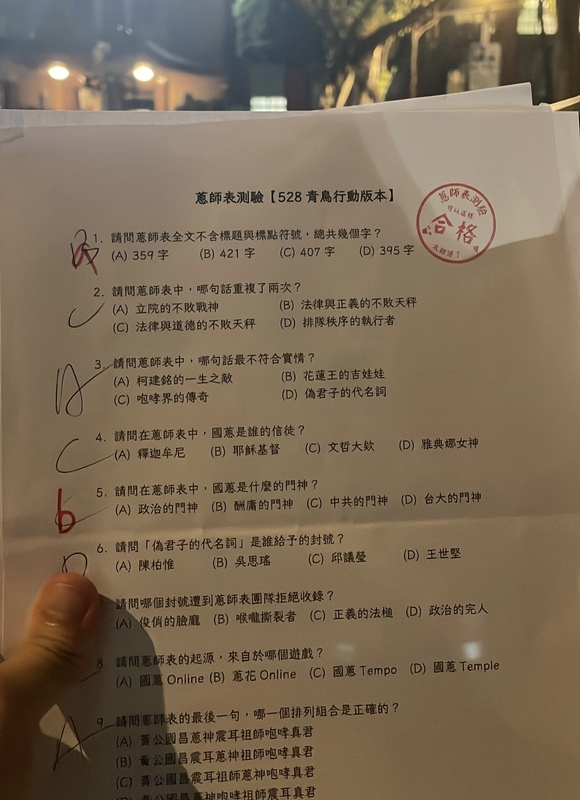 蔥師表測驗【528 青鳥行動版本】
蔥師表測驗
可以這樣
合格
太超過了
1. 請問蔥師表全文不含標題與標點符號，總共幾個字？
(A) 359 字 (B) 421 字 (C) 407 字 (D) 395 字
2. 請問蔥師表中，哪句話重複了兩次？
(A) 立院的不敗戰神 (B) 法律與正義的不敗天秤
(C) 法律與道德的不敗天秤 (D) 排隊秩序的執行者
C
3. 請問蔥師表中，哪句話最不符合實情？
(A) 柯建銘的一生之敵 (B) 花蓮王的吉娃娃
(C) 咆哮界的傳奇 (D) 偽君子的代名詞
A
4. 請問在蔥師表中，國蔥是誰的信徒？
(A) 釋迦牟尼 (B) 耶穌基督 (C) 文哲大欸 (D) 雅典娜女神
C
5. 請問在蔥師表中，國蔥是什麼的門神？
(A) 政治的門神 (B) 酬庸的門神 (C) 中共的門神 (D) 台大的門神
b
6. 請問「偽君子的代名詞」是誰給予的封號？
(A) 陳柏惟 (B) 吳思瑤 (C) 邱議瑩 (D) 王世堅
請問哪個封號遭到蔥師表團隊拒絕收錄？
(A) 俊俏的臉龐 (B) 喉嚨撕裂者 (C) 正義的法槌 (D) 政治的完人
8 請問蔥師表的起源，來自於哪個遊戲？
(A) 國蔥 Online (B) 蔥花 Online (C) 國蔥 Tempo (D) 國蔥 Temple
9. 請問蔥師表的最後一句，哪一個排列組合是正確的？
(A) 黃公國昌蔥神震耳祖師咆哮真君
(B) 黃公國昌震耳蔥神祖師咆哮真君
(C) 黃公國昌震耳祖師蔥神咆哮真君
A